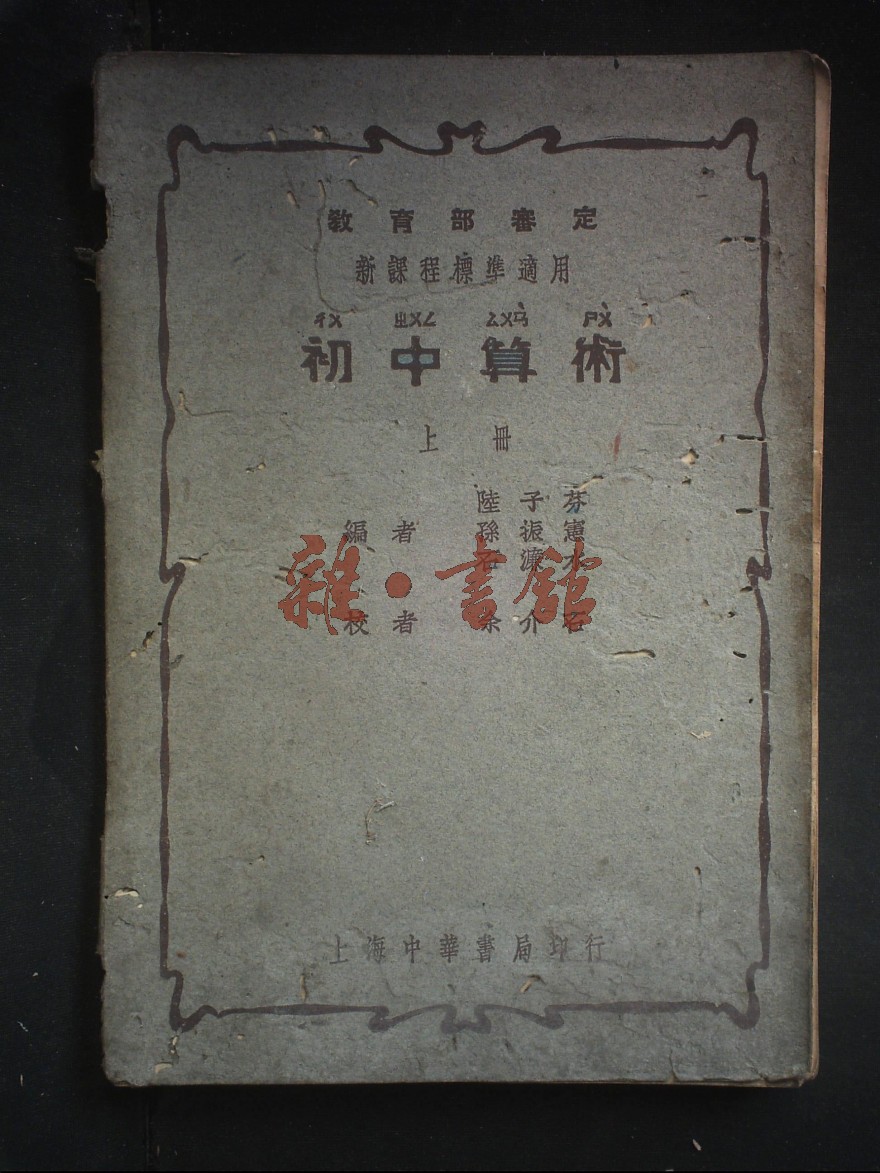 教育部審定
新課程標準適用
ㄔㄨ ㄓㄨㄥ ㄙㄨㄢˋ ㄕㄨˋ
初中算術
上冊
陸子芬
編者 孫振憲
石濂水
雜·書館
校者 余介石
上海中華書局印行